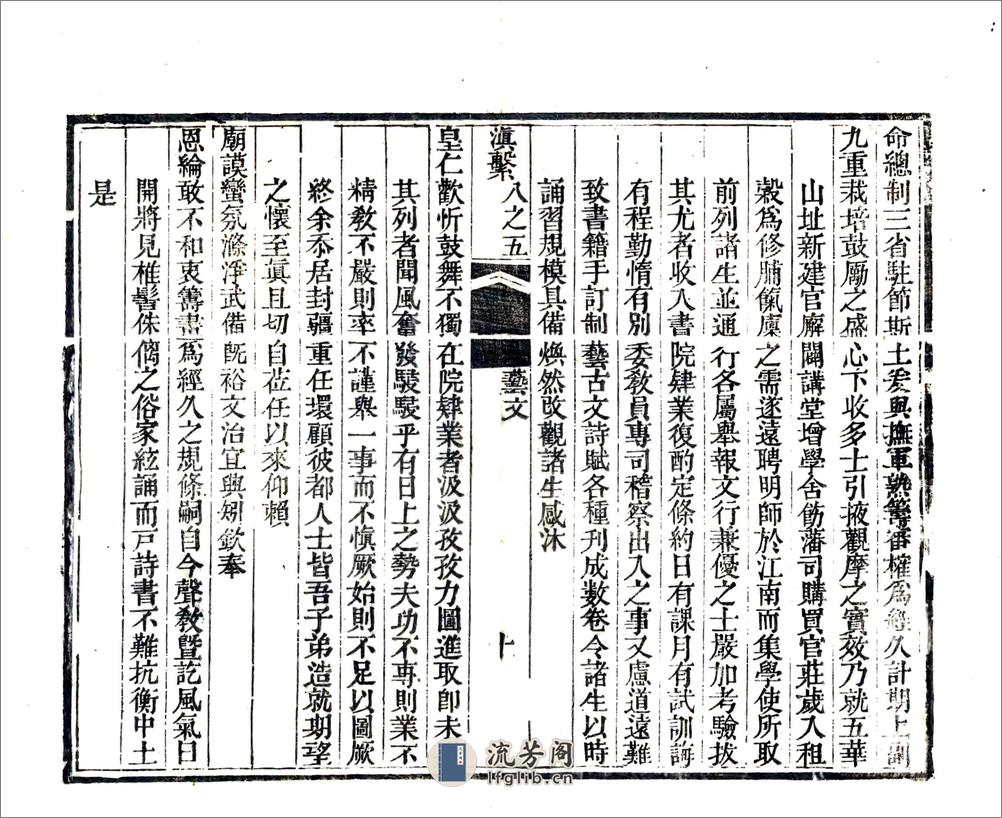 命總制三省駐節斯土爰與撫軍熟籌審榷爲經久計期上副
九重栽培鼓勵之盛心下收多士引掖觀摩之實效乃就五華
山址新建官廨闢講堂增學舍飭藩司購買官莊歲入租
穀爲修脯餼廩之需逐遠聘明師於江南而集學使所取
前列諸生並通行各屬舉報文行兼優之士嚴加考驗拔
其尤者收入書院肄業復酌定條約日有課月有試訓誨
有程勤惰有別委敎員專司稽察出入之事又慮道遠難
致書籍手訂制藝古文詩賦各種刊成數卷令諸生以時
誦習規模具備煥然改觀諸生咸沐
滇繫 八之五 藝文 十
皇仁歡忻鼓舞不獨在院肄業者汲汲孜孜力圖進取卽未
其列者聞風奮發駸駸乎有日上之勢夫功不專則業不
精敎不嚴則率不謹舉一事而不愼厥始則不足以圖厥
終余忝居封疆重任環顧彼都人士皆吾子弟造就期望
之懷至眞且切自莅任以來仰賴
廟謨蠻氛滌淨武備旣裕文治宜興矧欽奉
恩綸敢不和衷籌畫爲經久之規條嗣自今聲敎曁訖風氣日
開將見椎髻侏㒧之俗家絃誦而戸詩書不難抗衡中土
是
流芳阁
lfglib.cn